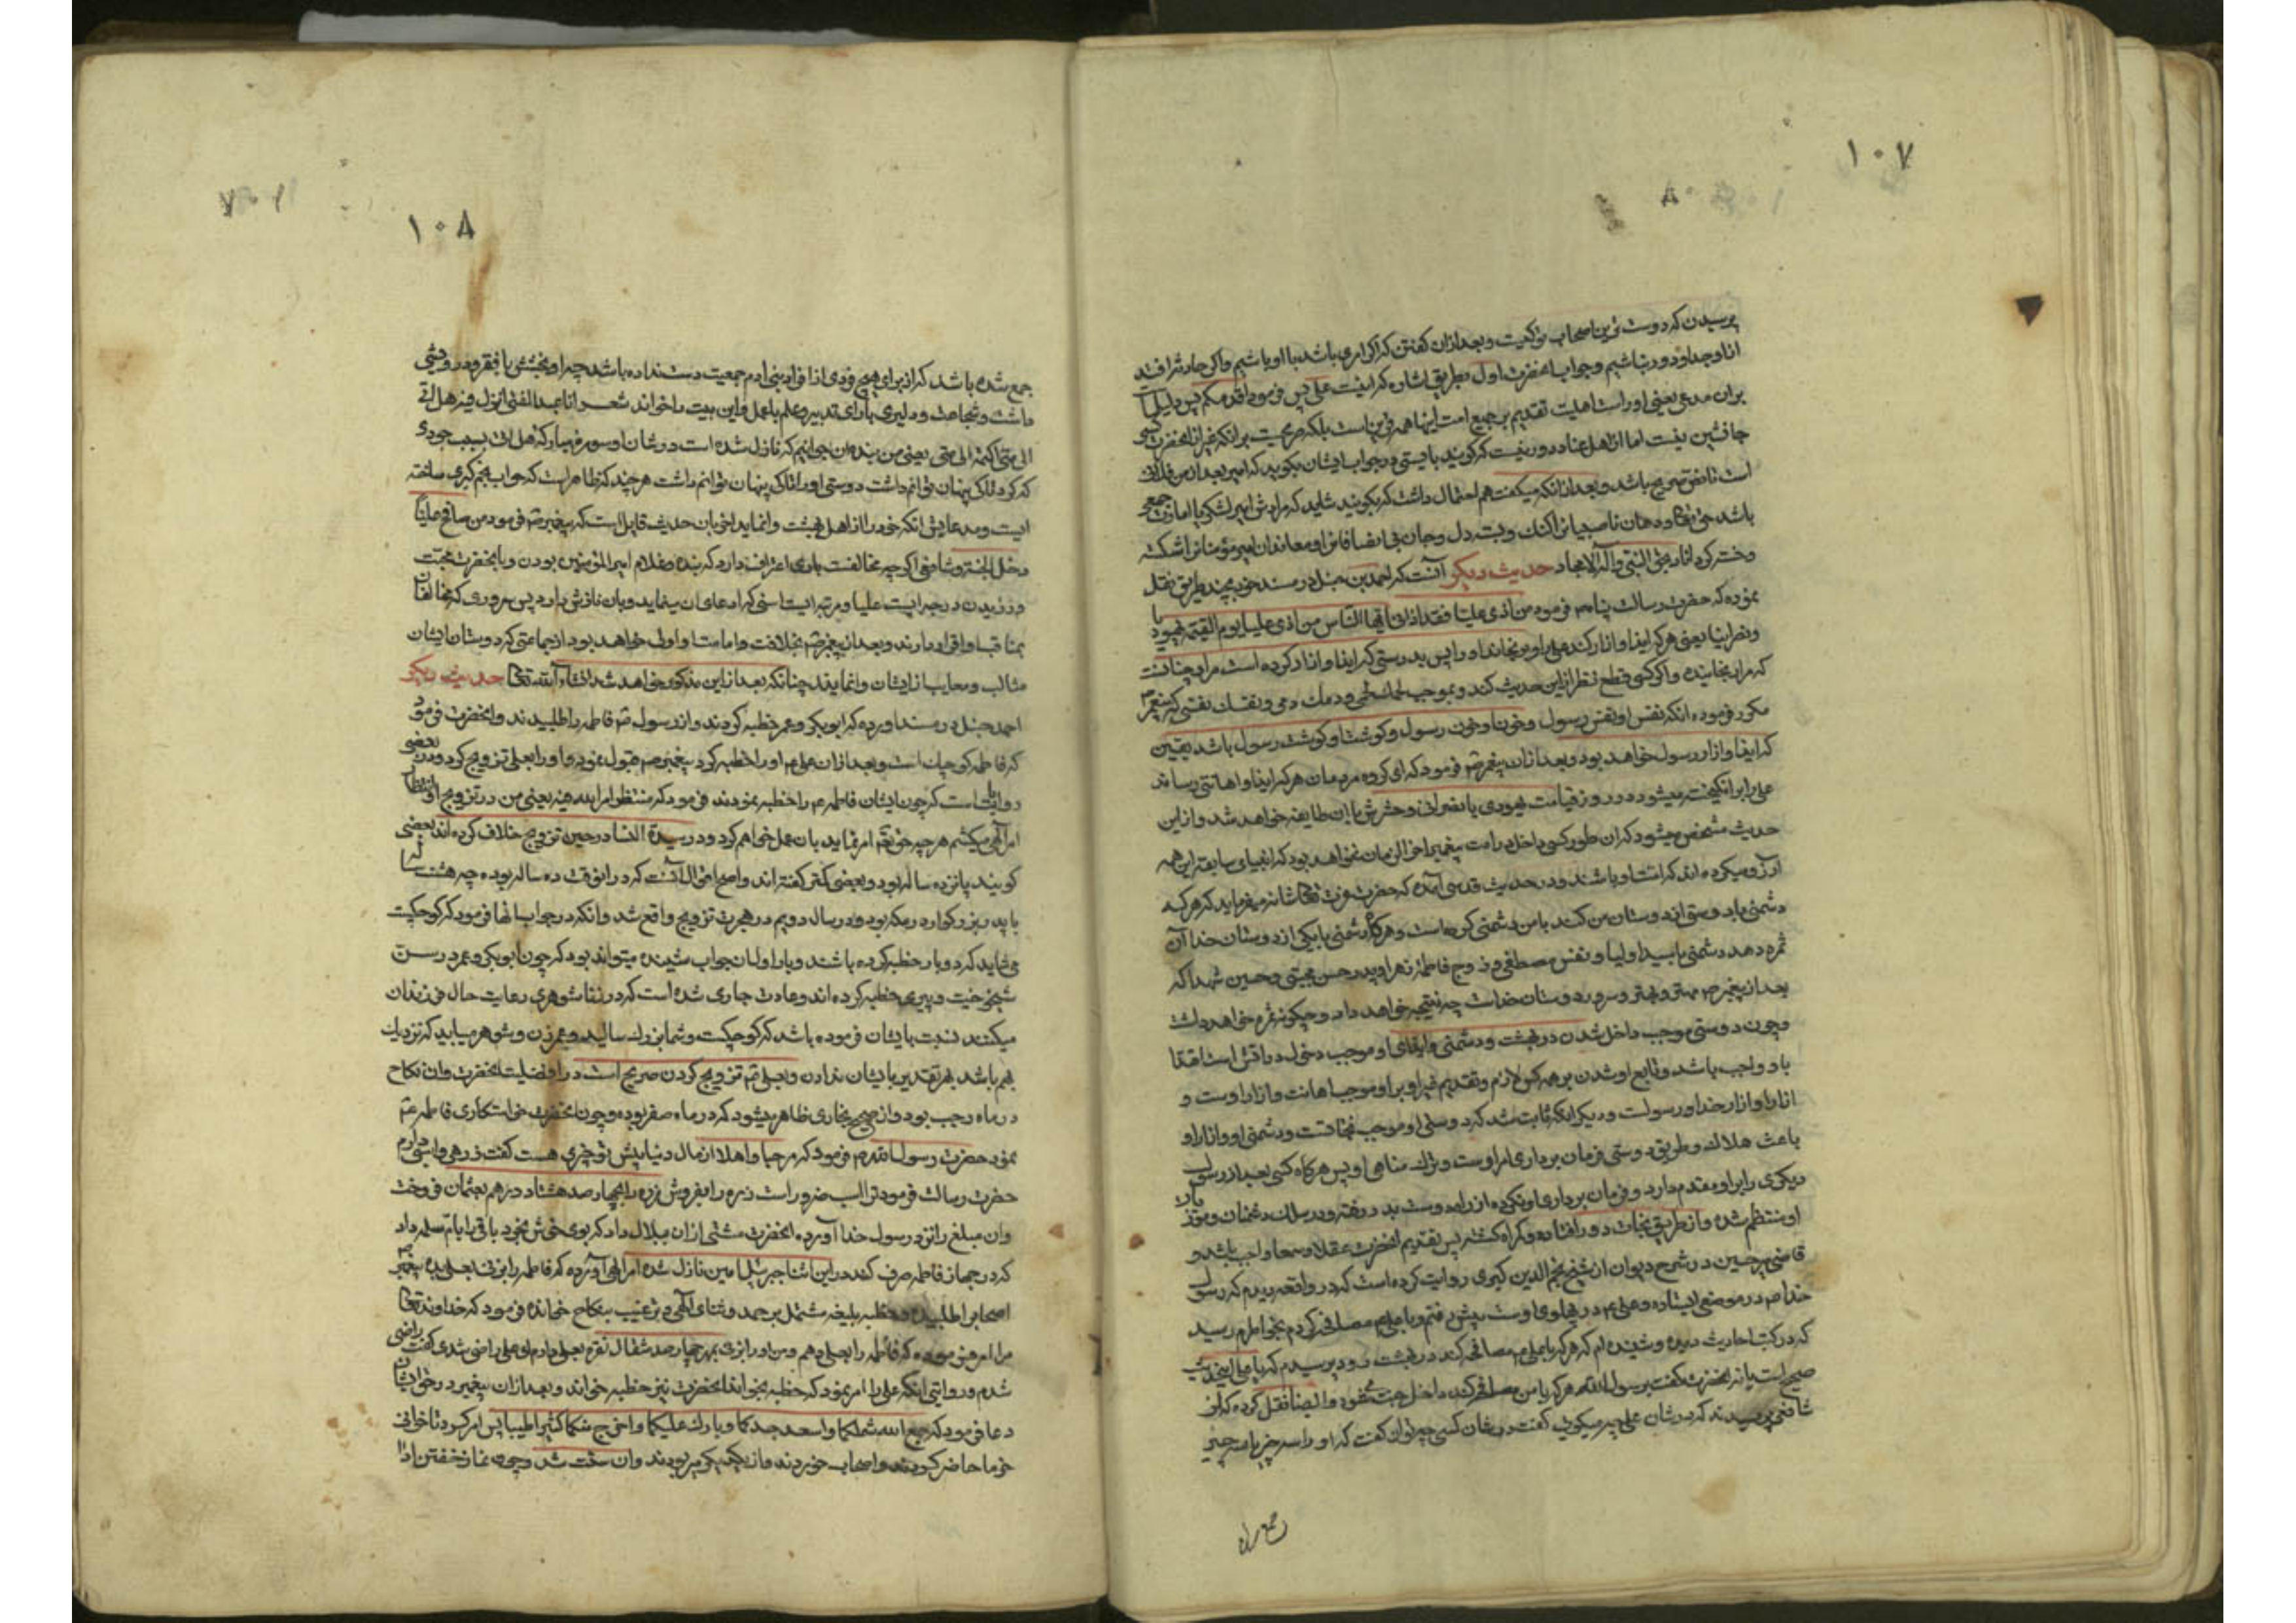 ١٠٧
پرسیدن که دوست ترین اصحاب تو کیست و بعد ازان گفتن که اگر امری باشد با او باشیم واگر حادثه افتد
ازو جدا و دور نباشیم و جواب انحضرت اول بطریق اشاره که اینست علی پس فرمود اقدمکم پس دلیلیست
بران مدعی یعنی اوراست اهلیت تقدیم بر جمیع امت اینها همه قرینه است بلکه صریحست برانکه غیر از انحضرت کسی
جانشین نیست اما از اهل عناد دور نیست که گویند بایستی در جواب ایشان بگوید که امیر بعد از من فلان
است تا نص صریح باشد و بعد از انکه میگفت هم احتمال داشت که بگویند شاید که مرادش امیر لشکر یا امارت جمعی
باشد حق تعالی دهان ناصبیانرا کند و بست دل و جان بی انصافان و معاندان امیر مؤمنانرا شکسته
و خسته گرداناد بحق النبی وآله الامجاد حدیث دیگر آنست که احمد بن حنبل در مسند خود بچند طریق نقل
نموده که حضرت رسالت پناه ص فرمود من اذی علیا فقد اذانی ایها الناس من اذی علیا یوم القیمة یهودیا
و نصرانیا یعنی هر که ایذا و ازار کند علی را و برنجاند او را پس بدرستی که ایذا و ازار کرده است مرا و چنانست
که مرا رنجانیده و اگر کسی قطع نظر از این حدیث کند و بموجب لحمک لحمی و دمک دمی و نفسک نفسی که پیغمبر ص
مکرر فرموده انکه نفس او نفس رسول و خون او خون رسول و گوشت او گوشت رسول باشد یقین
که ایذا و ازار رسول خواهد بود و بعد ازان پیغمبر ص فرمود که ای گروه مردمان هر که ایذا و اهانتی رساند
علی را برانگیخته میشود در روز قیامت یهودی یا نصرانی و حشرش با ان طایفه خواهد شد و از این
حدیث مشخص میشود که ان طور کسی داخل در امت پیغمبر اخر الزمان نخواهد بود که انبیای سابقه این همه
آرزو میکرده اند که امت او باشند و در حدیث قدسی آمده که حضرت عزت تعالی شانه میفرماید که هر که
دشمنی با دوستی از دوستان من کند با من دشمنی کرده است و هر گاه دشمنی با یکی از دوستان خدا آن
ثمره دهد دشمنی با سید اولیا و نفس مصطفی و زوج فاطمه زهرا و پدر حسن مجتبی و حسین شهدا که
بعد از پیغمبر ص مهتر و بهتر و سرور دوستان خداست چه نتیجه خواهد داد و چگونه ثمره خواهد داشت
و چون دوستی موجب داخل شدن در بهشت و دشمنی و ایذای او موجب دخول در اتش است اقتدا
باو واجب باشد و تابع او شدن بر همه کس لازم و تقدیم غیر او بر او موجب اهانت و ازار اوست و
ازار او ازار خدا و رسولست و دیگر انکه ثابت شد که دوستی او موجب نجاتست و دشمنی او و ازار او
باعث هلاک و طریق دوستی فرمان برداری امر اوست و ترک مناهی او پس هر گاه کسی بعد از رسول
دیگری را بر او مقدم دارد و فرمان برداری او نکرده از راه دوست بدر رفته و در سلک دشمنان و موذیان
او منتظم شده و از طریق نجات دور افتاده و گمراه گشته پس تقدیم انحضرت عقلا و سمعا واجب باشد و
قاضی میر حسین در شرح دیوان از شیخ نجم الدین کبری روایت کرده است که در واقعه دیدم که رسول
خدا ص در موضعی ایستاده و علی ع در پهلوی اوست پیش رفتم و با علی ع مصافحه کردم بخاطرم رسید
که در کتب احادیث دیده و شنیده ام که هر که با علی ع مصافحه کند در بهشت رود پرسیدم که یا علی این حدیث
صحیح است یا نه انحضرت گفت بر سول الله هر که با من مصافحه کند داخل جنت شود و ایضا نقل کرده که از
شافعی پرسیدند که در شان علی چه میگوئی گفت در شان کسی چه توان گفت که او را سه چیز با سه چیز
جمع شده
١٠٨
جمع شده باشد که از برای هیچ فردی از افراد بنی ادم جمعیت دست نداده باشد چه او بخشش با فقر و درویشی
داشت و شجاعت و دلیری با رای تدبیر و علم با عمل و این بیت را خواند شعر انا عبد الفتی انزل فیه هل اتی
الی متی اکتمه الی متی یعنی من بنده ان جوانیم که نازل شده است در شان او سوره مبارکه هل اتی بسبب جودی
که کرد تا کی پنهان توانم داشت دوستی او را تا کی پنهان توانم داشت هر چند که ظاهر است که جواب نجم کبری ساخته
ایست و مدعایش انکه خود را از اهل بهشت وا نماید اخر بان حدیث قایل است که پیغمبر ص فرمود من صافح علیا
دخل الجنة و شافعی اگر چه مخالفست باری اعتراف دارد که بنده و غلام امیر المؤمنین بودن و با انحضرت محبت
ورزیدن درجه ایست علیا و مرتبه ایست سنی که ادعای ان مینماید و بان نازش دارد پس سروری که مخالفان
بمناقب او اقرار دارند و بعد از پیغمبر ص بخلافت و امامت او اولی خواهد بود از جماعتی که دوستان ایشان
مثالب و معایب از ایشان وا نمایند چنانکه بعد از این مذکور خواهد شد انشاء الله تعالی حدیث دیگر
احمد حنبل در مسند اورده که ابو بکر و عمر خطبه کردند و از رسول ص فاطمه را طلبیدند و انحضرت فرمود
که فاطمه کوچک است و بعد ازان علی ع او را خطبه کرد پیغمبر ص قبول نمود و او را بعلی تزویج کرد و در بعضی
روایات است که چون ایشان فاطمه ع را خطبه نمودند فرمود که منتظر امر الله فیه یعنی من در تزویج او انتظار
امر الهی میکشم هر چه حق تعم امر نماید بان عمل خواهم کرد و در سن سیدة النسا در حین تزویج خلاف کرده اند بعضی
گویند پانزده ساله بود و بعضی کمتر گفته اند و اصح اقوال آنست که در انوقت ده ساله بوده چه هشت سال
با پدر بزرگوار در مکه بود و در سال دویم در هجرت تزویج واقع شد و انکه در جواب انها فرمود که کوچکست
می شاید که دو بار خطبه کرده باشند و بار اول ان جواب شنیده میتواند بود که چون ابو بکر و عمر در سن
شیخوخیت و پیری خطبه کرده اند و عادت جاری شده است که در زناشوهری رعایت حال فرزندان
میکنند نسبت بایشان فرموده باشد که کوچکست و شما بزرگ سالید و عمر زن و شوهر میباید که نزدیک
بهم باشد بهر تقدیر بایشان ندادن و بعلی ع تزویج کردن صریح است در افضلیت انحضرت و ان نکاح
در ماه رجب بود و از صحیح بخاری ظاهر میشود که در ماه صفر بوده و چون انحضرت خواستکاری فاطمه ع
نمود حضرت رسول الله ص فرمود که مرحبا و اهلا از مال دنیا پیش تو چیزی هست گفت زرهی و اسبی دارم
حضرت رسالت فرمود ترا اسب ضرور است زره را بفروش زره را بچهار صد هشتاد درهم بعثمان فروخت
وان مبلغ را نزد رسول خدا آورده انحضرت مشتی ازان ببلال داد که بوی خوش بخرد باقی را بام سلمه داد
که در جهاز فاطمه صرف کند در این اثنا جبرئیل امین نازل شده امر الهی آورده که فاطمه را بزنی بعلی بده پیغمبر ص
اصحاب را طلبیده و خطبه بلیغه مشتمل بر حمد و ثنای الهی و ترغیب بنکاح خوانده فرمود که خداوند تعالی
مرا امر فرموده که فاطمه را بعلی دهم و من او را بزنی بمهر چهار صد مثقال نقره بعلی دادم او علی راضی شدی گفت راضی
شدم و روایتی انکه علی را امر نمود که خطبه بخواند انحضرت نیز خطبه خواند و بعد ازان پیغمبر در حق ایشان
دعا فرمود که جمع الله شملکما و اسعد جدکما و بارک علیکما و اخرج منکما کثیرا طیبا پس امر کرد تا خوانی
خرما حاضر کردند و اصحاب خوردند و از یکدیگر میربودند وان سنت شد و چون نماز خفتن ادا